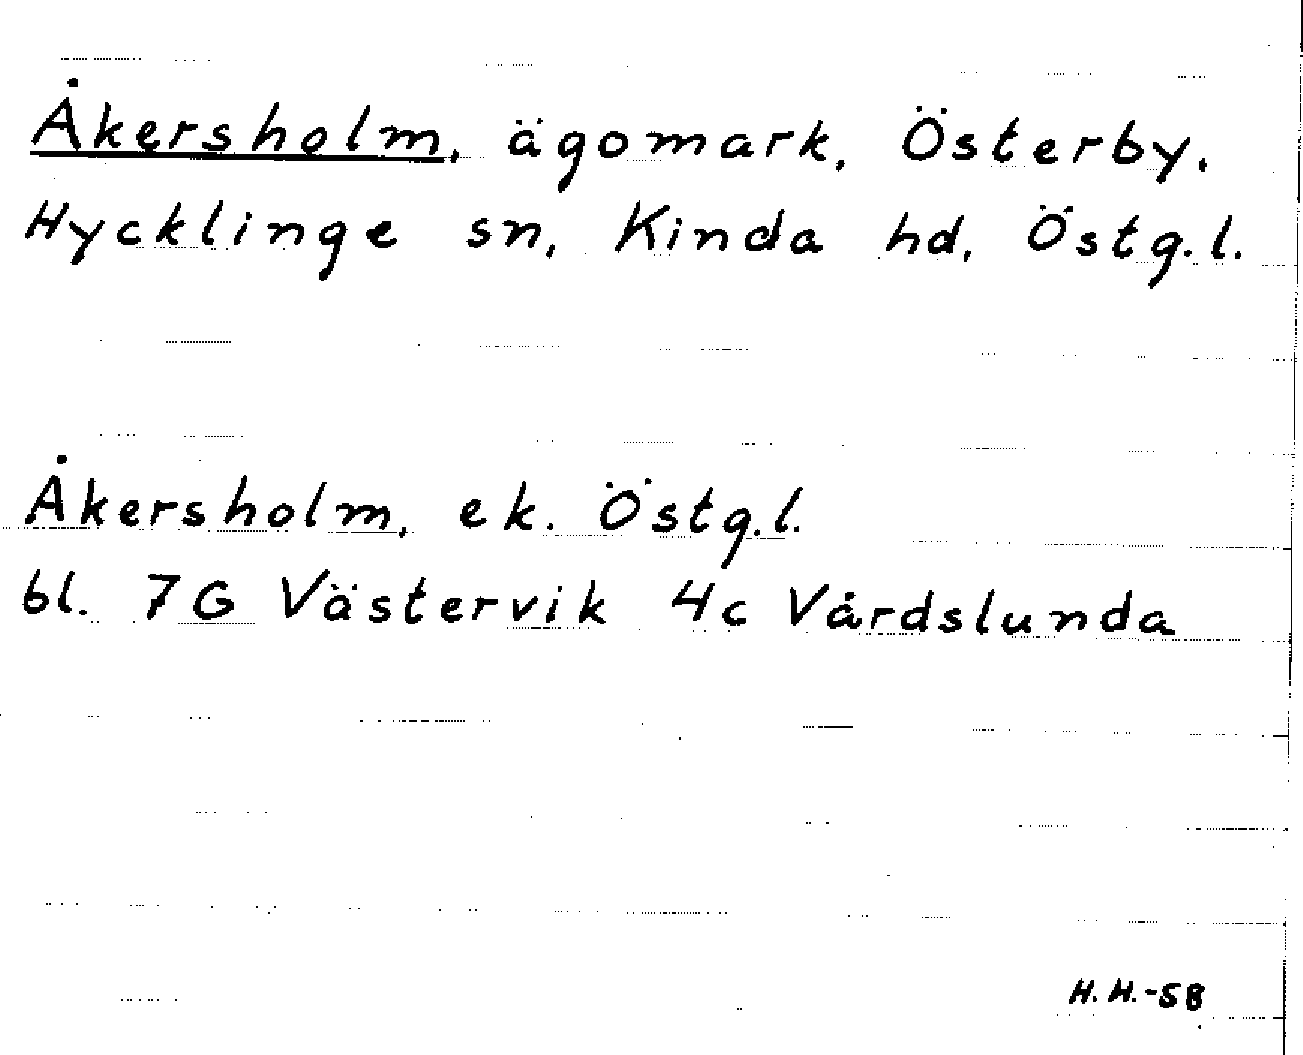 Åkersholm, ägomark, Österby,
Hycklinge sn, Kinda hd, Östg.l.
Åkersholm, ek. Östg.l.
bl. 7G Västervik 4c Vårdslunda
H.H.-58